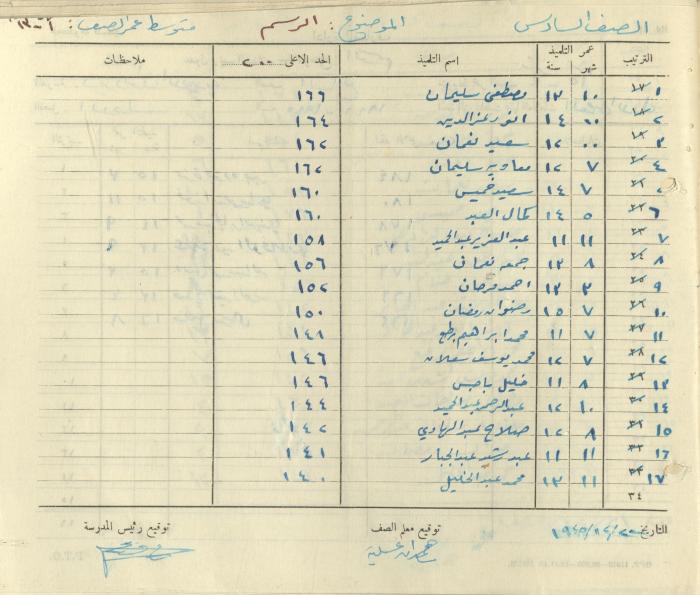 الصف السادس الموضوع: الرسم متوسط عمر الصف:
الترتيب عمر التلميذ اسم التلميذ الحد الاعلى ٢٠٠ ملاحظات
شهر سنة
١ ١٠ ١٣ مصطفى سليمان ١٦٦
٢ ٠٠ ١٤ انور عز الدين ١٦٤
٣ ٠٠ ١٢ سعيد نعمان ١٦٢
٤ ٧ ١٢ معاويه سليمان ١٦٢
٧ ١٤ سعيد خميس ١٦٠
٦ ٥ ١٤ كمال العبد ١٦٠
٧ ١١ ١١ عبد العزيز عبد الحميد ١٥٨
٨ ٨ ١٣ جمعه نعمان ١٥٦
٩ ٣ ١٣ احمد فرحان ١٥٢
١٠ ٧ ١٥ رضوان رمضان ١٥٠
١١ ٧ ١١ محمد ابراهيم ١٤٨
١٢ ٧ ١٢ محمد يوسف ١٤٦
١٣ ٨ ١١ خليل ١٤٦
١٤ ١٠ ١٢ عبد الرحمن عبد الحميد ١٤٤
١٥ ٨ ١٢ صلاح عبد الهادي ١٤٢
١٦ ١١ ١١ عبد الجبار ١٤١
١٧ ١١ ١٣ محمد عبد الخليل ١٤٠
٣٤
التاريخ توقيع معلم الصف توقيع رئيس المدرسة